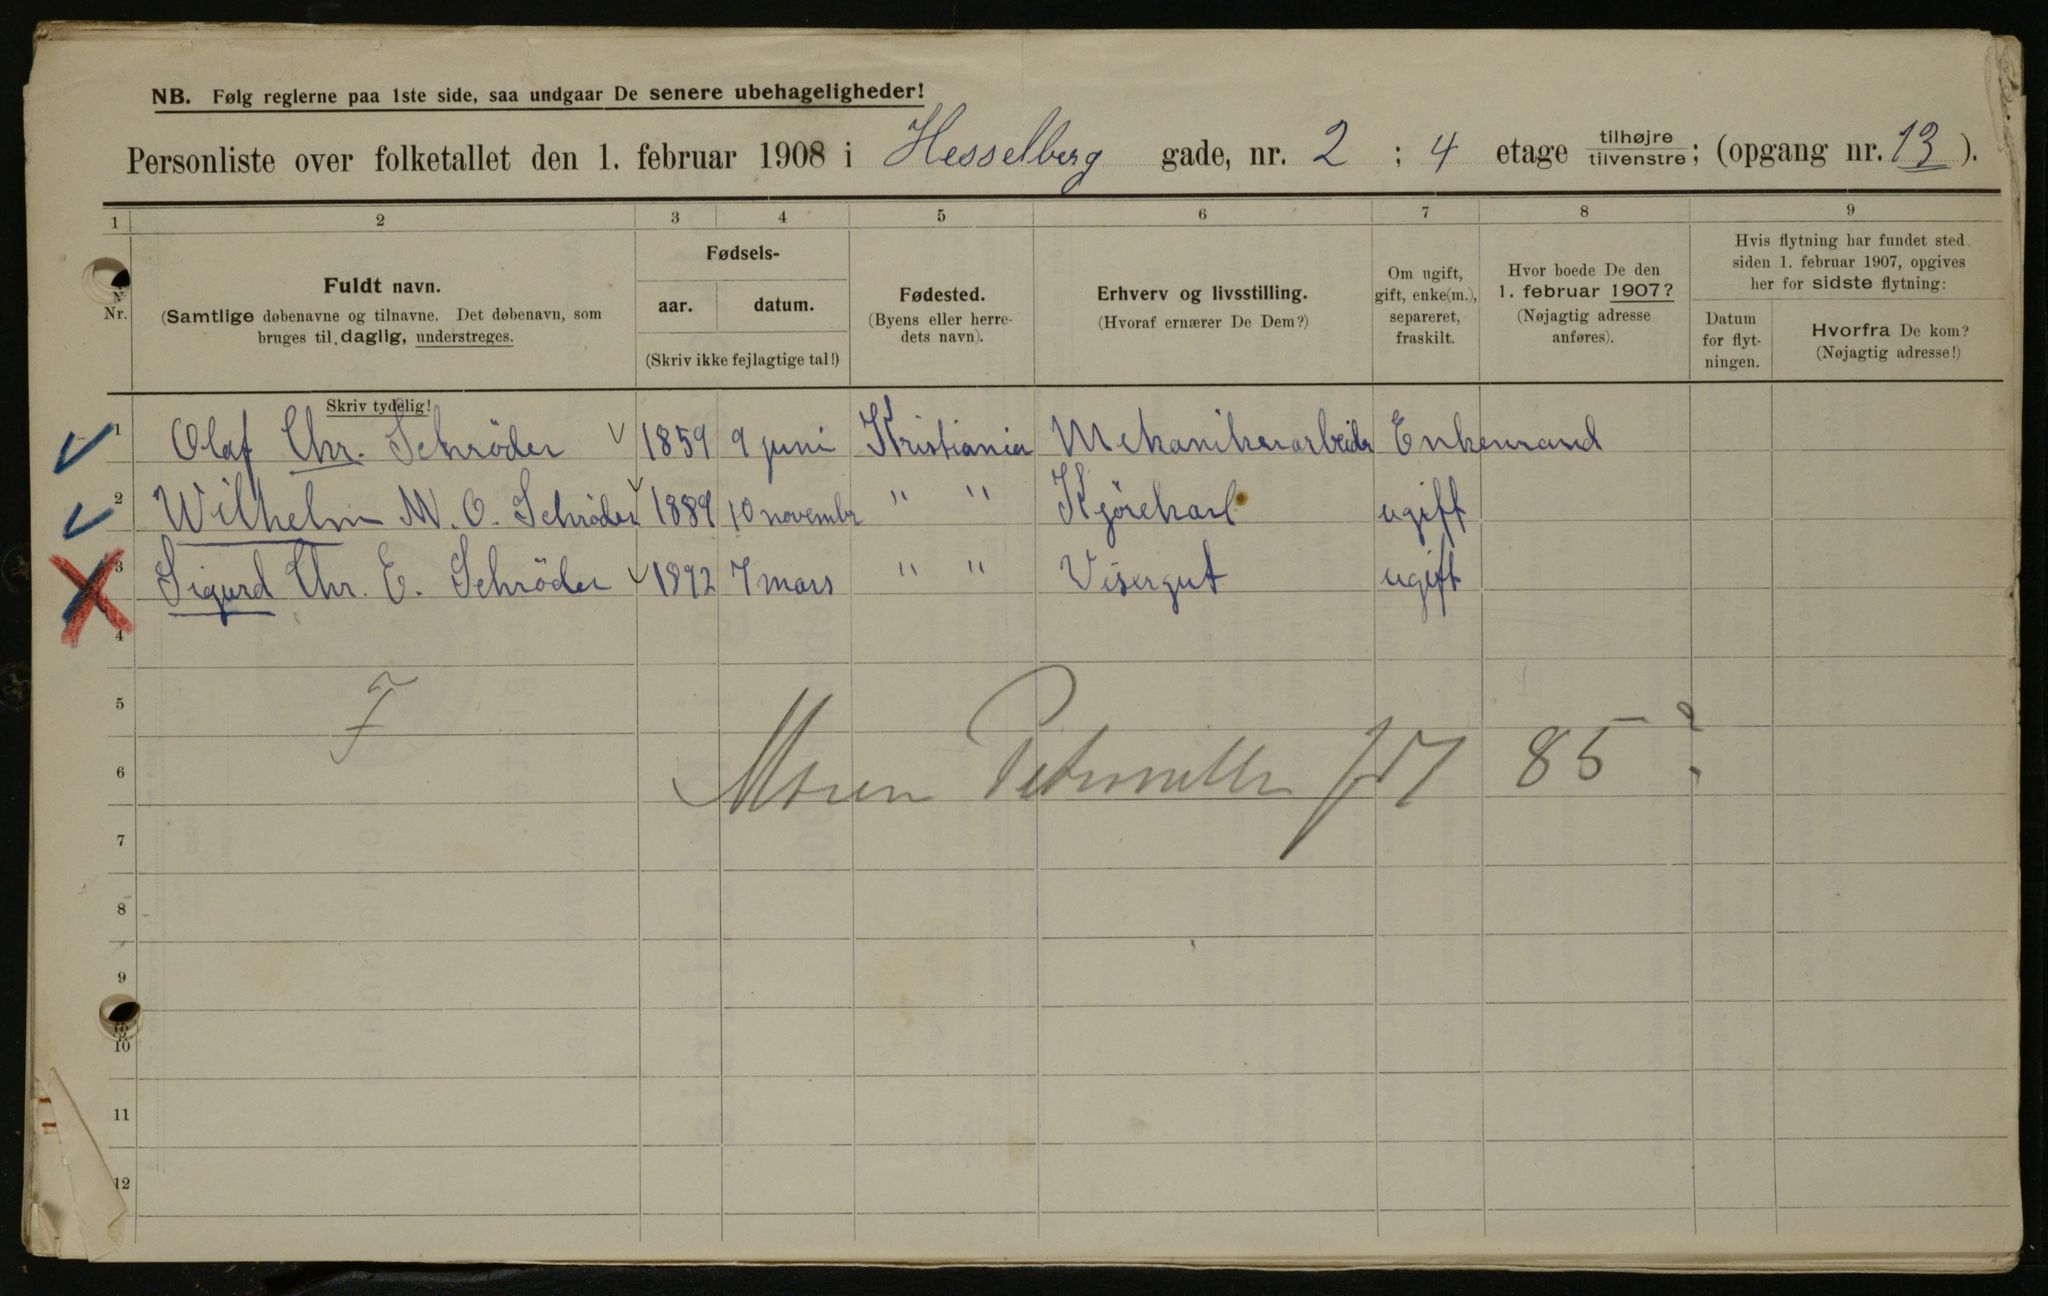 NB. Følg reglerne paa 1ste side, saa undgaar De senere ubehageligheder!
Personliste over folketallet den 1. februar 1908 i Hesselberg gade, nr. 2 ; 4 etage tilhøjre tilvenstre; (opgang nr. 13 ).
1 2 3 4 5 6 7 8 9
Nr.
Fuldt navn.
(Samtlige døbenavne og tilnavne. Det døbenavn, som
bruges til daglig, understreges.
Skriv tydelig!
Fødsels-
aar. datum.
(Skriv ikke fejlagtige tal!)
Fødested.
(Byens eller herre-
dets navn).
Erhverv og livsstilling.
(Hvoraf ernærer De Dem?)
Om ugift,
gift, enke(m.),
separeret,
fraskilt.
Hvor boede De den
1. februar 1907?
(Nøjagtig adresse
anføres).
Hvis flytning har fundet sted
siden 1. februar 1907, opgives
her for sidste flytning:
Datum
for flyt-
ningen.
Hvorfra De kom?
(Nøjagtig adresse!)
1 Olaf Chr. Schrøder 1859 9 juni Kristiania Mekanikerarbeidr Enkemand
2 Wilhelm M. O. Schrøder 1889 10 novembr " " Kjørekarl ugift
3 Sigurd Chr. E. Schrøder 1892 7 mars " " Visergut ugift
4
5 F
6 85 ?
7
8
9
10
11
12